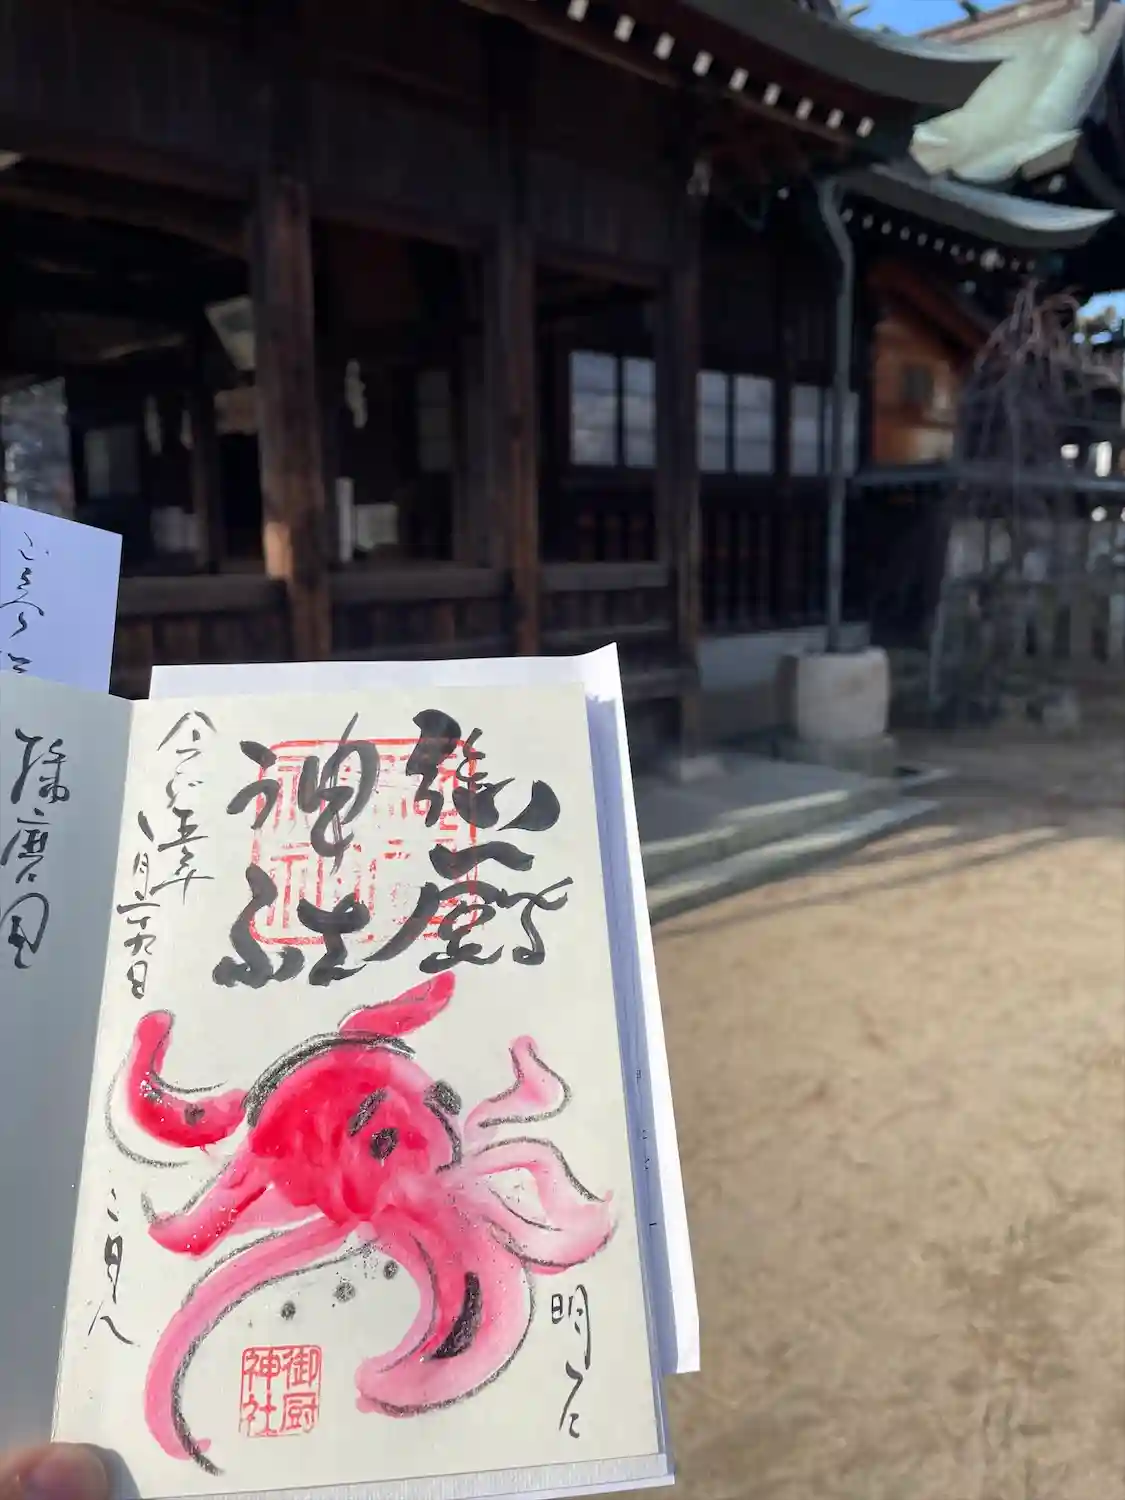 御厨
神社
令和五年
一月二十九日
明石
二見
御厨
神社
播磨国